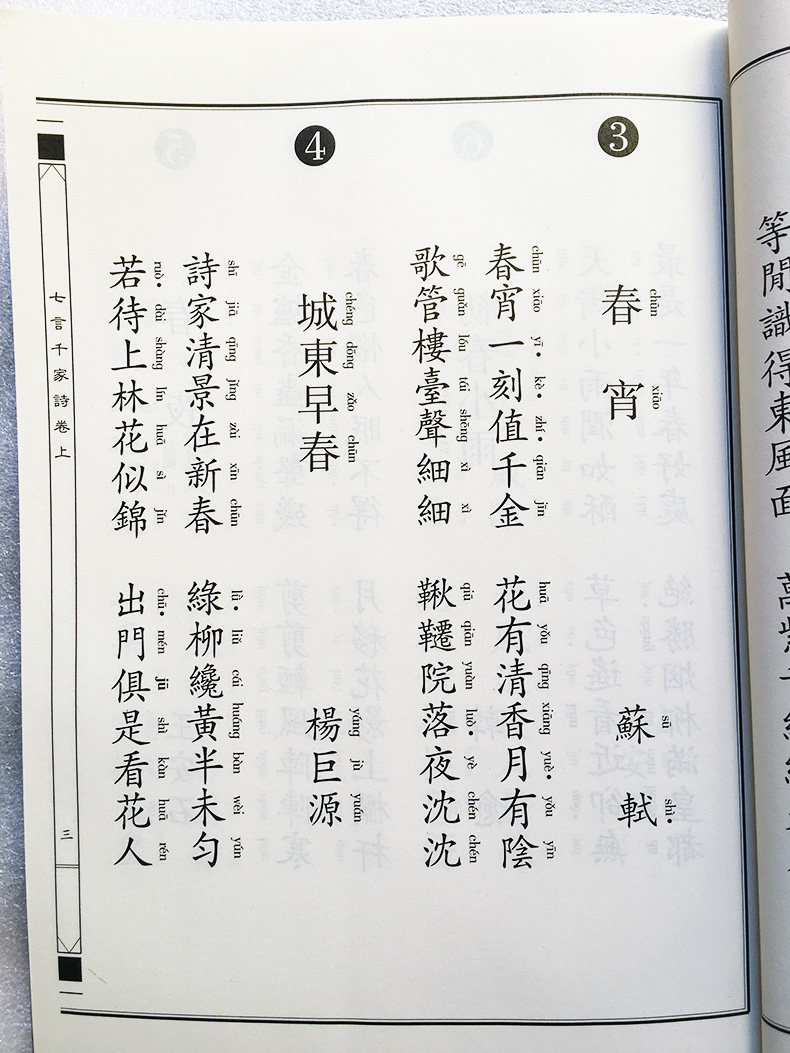 等閒識得東風面
❸
chūn xiāo
春宵
sū shì•
蘇軾
chūn xiāo yī• kè• zhí• qiān jīn huā yǒu qīng xiāng yuè• yǒu yīn
春宵一刻值千金 花有清香月有陰
gē guǎn lóu tái shēng xì xì qiū qiān yuàn luò• yè chén chén
歌管樓臺聲細細 鞦韆院落夜沈沈
❹
chéng dōng zǎo chūn
城東早春
yáng jù yuán
楊巨源
shī jiā qīng jǐng zài xīn chūn lǜ• liǔ cái huáng bàn wèi yún
詩家清景在新春 綠柳纔黃半未匀
ruò• dài shàng lín huā sì jǐn chū• mén jū shì kàn huā rén
若待上林花似錦 出門俱是看花人
七言千家詩卷上
三